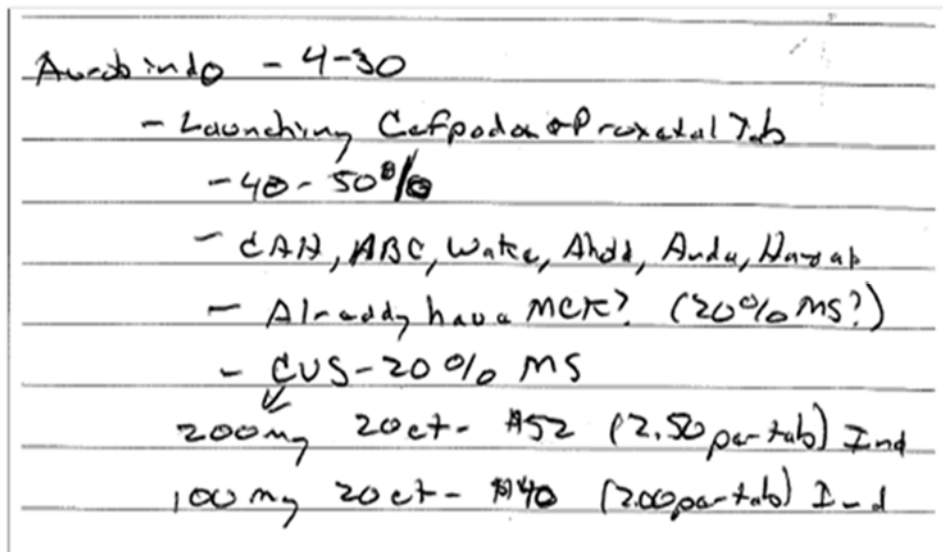 Aurobindo - 4-30
- Launching Cefpodox Proxetal Tab
- 40 - 50%
- CAH, ABC, Wake, Ahold, Anda, Harvard
- Already have MCK? (20% MS?)
- CVS - 20% MS
200mg 20ct - $52 (2.50 per tab) Ind
100mg 20ct - $40 (2.00 per tab) Ind